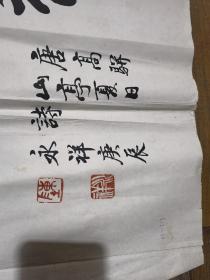 唐高駢
山亭夏日
詩
永祥庚辰